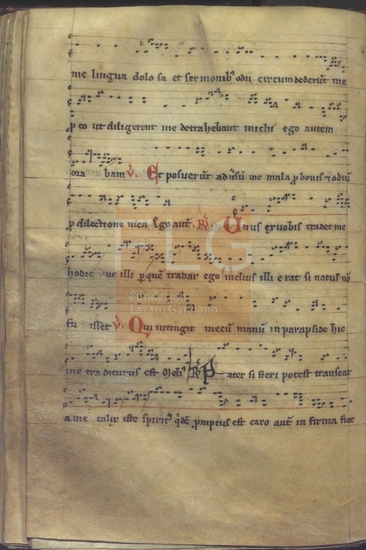 me lingua dolosa et sermonibꝰ odii circumdederūt me
p eo ut diligerent me detrahebant michi ego autem
ora bam ℣. Et posuerūt adūsū me mala p bonis et odiū
p dilectione mea Ego aut̄ ℟. Unus ex vobis tradet me
hodie ve illi p quē tradar ego melius illi erat si natus nō
fu isset ℣. Qui intingit mecū manū in parapside hic
me tra diturus est Meli ℟. Pater si fieri potest transeat
a me calix iste spiritꝰ qdē promptus est caro aut̄ in firma fiat